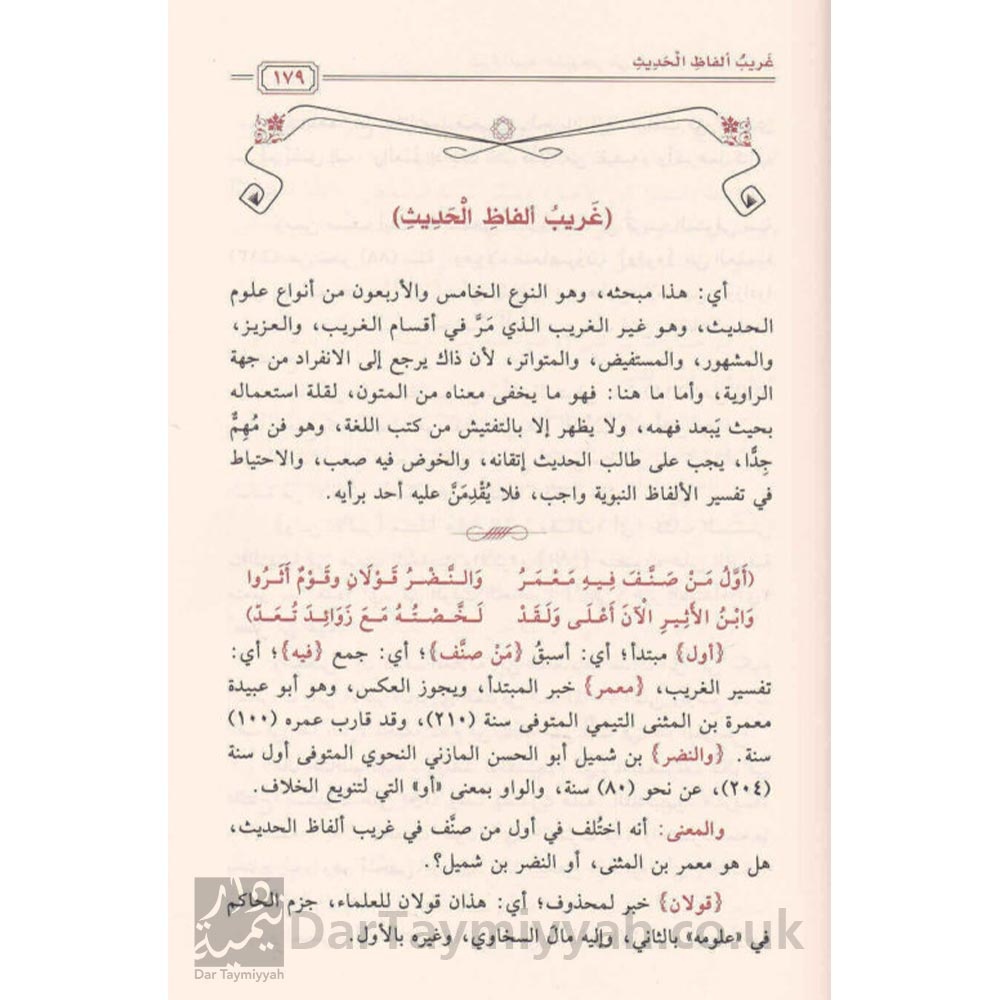 غَريبُ ألفاظِ الْحَدِيثِ
١٧٩
(غَريبُ ألفاظِ الْحَدِيثِ)
أي: هذا مبحثه، وهو النوع الخامس والأربعون من أنواع علوم
الحديث، وهو غير الغريب الذي مَرَّ في أقسام الغريب، والعزيز،
والمشهور، والمستفيض، والمتواتر، لأن ذاك يرجع إلى الانفراد من جهة
الراوية، وأما ما هنا: فهو ما يخفى معناه من المتون، لقلة استعماله
بحيث يَبعد فهمه، ولا يظهر إلا بالتفتيش من كتب اللغة، وهو فن مُهِمٌّ
جِدًّا، يجب على طالب الحديث إتقانه، والخوض فيه صعب، والاحتياط
في تفسير الألفاظ النبوية واجب، فلا يُقْدِمَنَّ عليه أحد برأيه.
(أَوَّلُ مَنْ صَنَّفَ فِيهِ مَعْمَرُ وَالنَّضْرُ قَوْلَانِ وقَوْمٌ أَثَرُوا
وَابْنُ الأَثِيرِ الْآنَ أَعْلَى وَلَقَدْ لَخَّصْتُهُ مَعَ زَوَائِدَ تُعَدّ)
{أول} مبتدأ؛ أي: أسبقُ {مَن صنَّف}؛ أي: جمع {فيه}؛ أي:
تفسير الغريب، {معمر} خبر المبتدأ، ويجوز العكس، وهو أبو عبيدة
معمرة بن المثنى التيمي المتوفى سنة (٢١٠)، وقد قارب عمره (١٠٠)
سنة. {والنضر} بن شميل أبو الحسن المازني النحوي المتوفى أول سنة
(٢٠٤)، عن نحو (٨٠) سنة، والواو بمعنى «أو» التي لتنويع الخلاف.
والمعنى: أنه اختُلف في أول من صنَّف في غريب ألفاظ الحديث،
هل هو معمر بن المثنى، أو النضر بن شميل؟.
{قولان} خبر لمحذوف؛ أي: هذان قولان للعلماء، جزم الحاكم
في «علومه» بالثاني، وإليه مال السخاوي، وغيره بالأول.
Dar Taymiyyah
DarTaymiyyah.co.uk